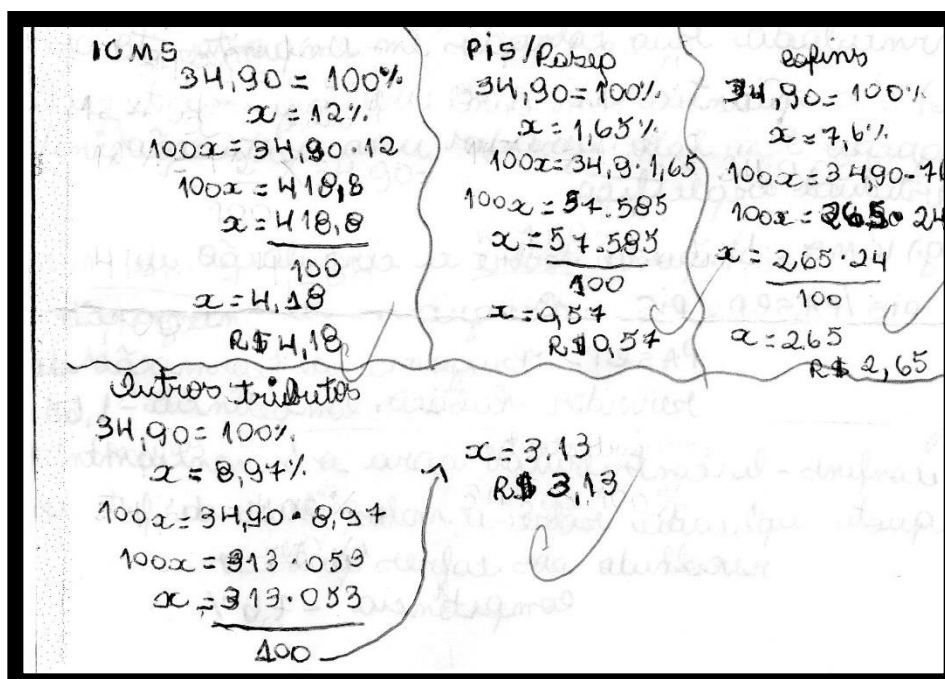 ICMS
34,90 = 100%
x = 12%
100x = 34,90 · 12
100x = 418,8
x = 418,8
100
x = 4,18
R$ 4,18
PIS/Pasep
34,90 = 100%
x = 1,65%
100x = 34,9 · 1,65
100x = 57.585
x = 57.585
100
x = 0,57
R$ 0,57
Cofins
34,90 = 100%
x = 7,6%
100x = 34,90 · 7
100x = 265 · 24
x = 265 · 24
100
x = 265
R$ 2,65
Outros tributos
34,90 = 100%
x = 8,97%
100x = 34,90 · 8,97
100x = 313 · 053
x = 313 · 053
100
x = 3,13
R$ 3,13